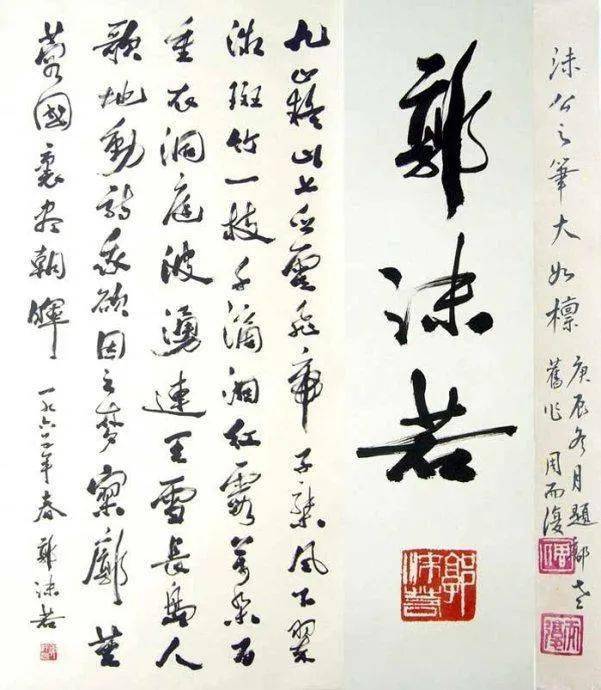 沫公之筆大如
庚辰冬月題郭老
舊作 周而復
郭沫若
郭沫若
九嶷山上白雲飛帝子乘風下翠
微斑竹一枝千滴淚紅霞萬朵百
重衣洞庭波湧連天雪長島人
歌地動詩我欲因之夢寥廓芙
蓉國裏盡朝暉 一九六二年春 郭沫若